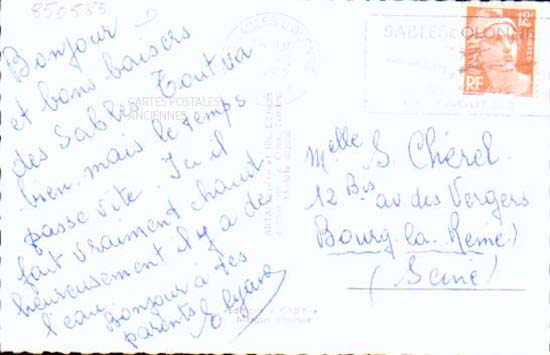 850585 D
Bonjour
et bons baisers
des Sables. Tout va
bien, mais le temps
passe vite. Ici il
fait vraiment chaud
heureusement il y a de
l'eau. Bonjour à tes
parents.
CARTES POSTALES
ANCIENNES
SABLES OLONNE
12F
RF
Melle S. Chérel
12 Bis av des Vergers
Bourg-la-Reine
(Seine)